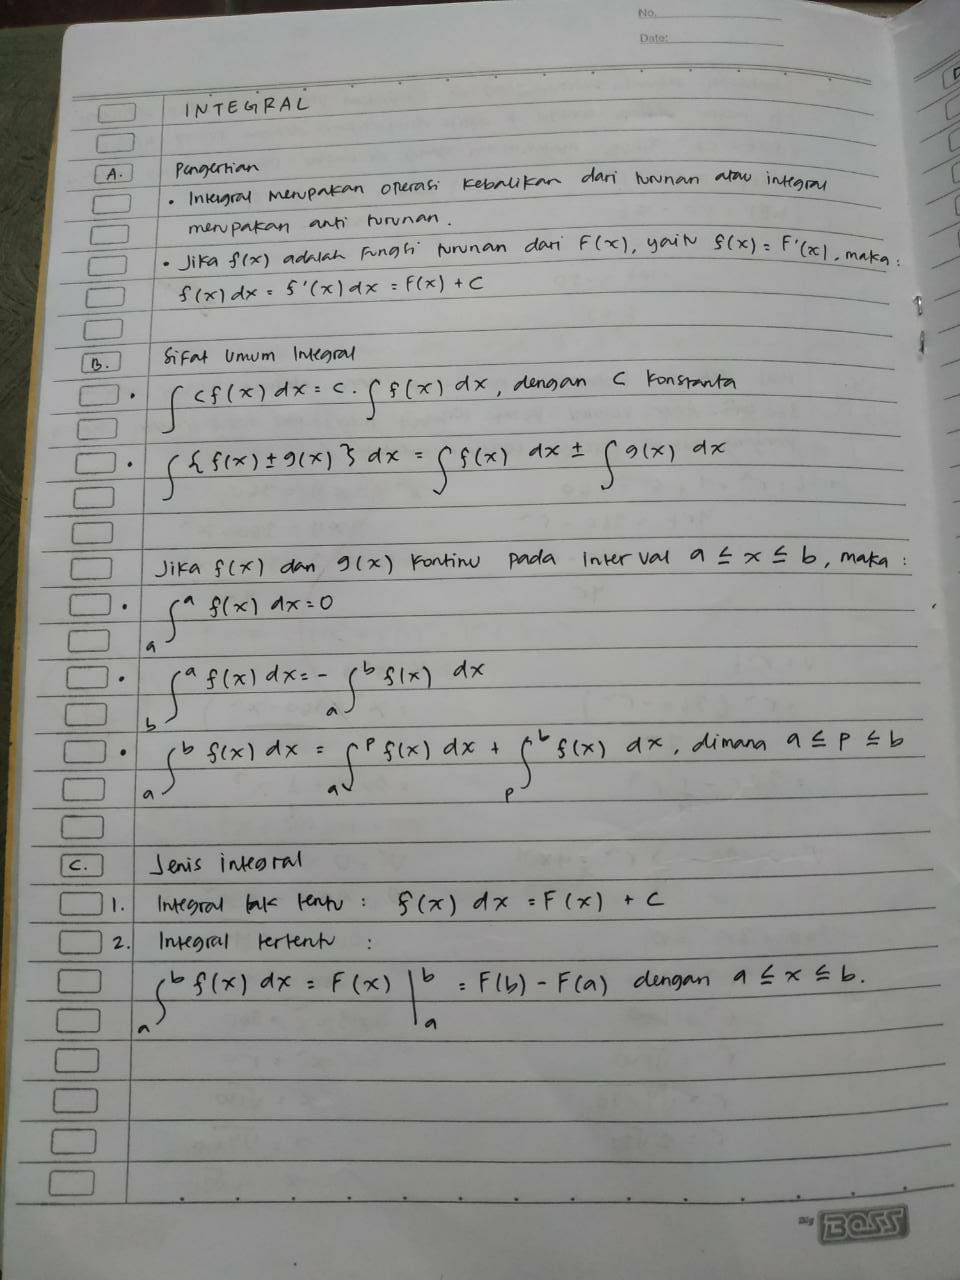 No.
Date:
INTEGRAL
A. Pengertian
• Integral merupakan operasi kebalikan dari turunan atau integral
merupakan anti turunan.
• Jika f(x) adalah fungsi turunan dari F(x), yaitu f(x) = F'(x), maka :
f(x) dx = f'(x) dx = F(x) + C
B. Sifat Umum Integral
• ∫ c f(x) dx = c . ∫ f(x) dx, dengan c konstanta
• ∫ { f(x) ± g(x) } dx = ∫ f(x) dx ± ∫ g(x) dx
Jika f(x) dan g(x) kontinu pada interval a ≤ x ≤ b, maka :
• ₐ∫ᵃ f(x) dx = 0
• b∫ᵃ f(x) dx = - ₐ∫ᵇ f(x) dx
• ₐ∫ᵇ f(x) dx = ₐ∫ᵖ f(x) dx + ₚ∫ᵇ f(x) dx, dimana a ≤ p ≤ b
C. Jenis integral
1. Integral tak tentu : f(x) dx = F(x) + C
2. Integral tertentu :
ₐ∫ᵇ f(x) dx = F(x) |ₐᵇ = F(b) - F(a) dengan a ≤ x ≤ b.
Big BOSS